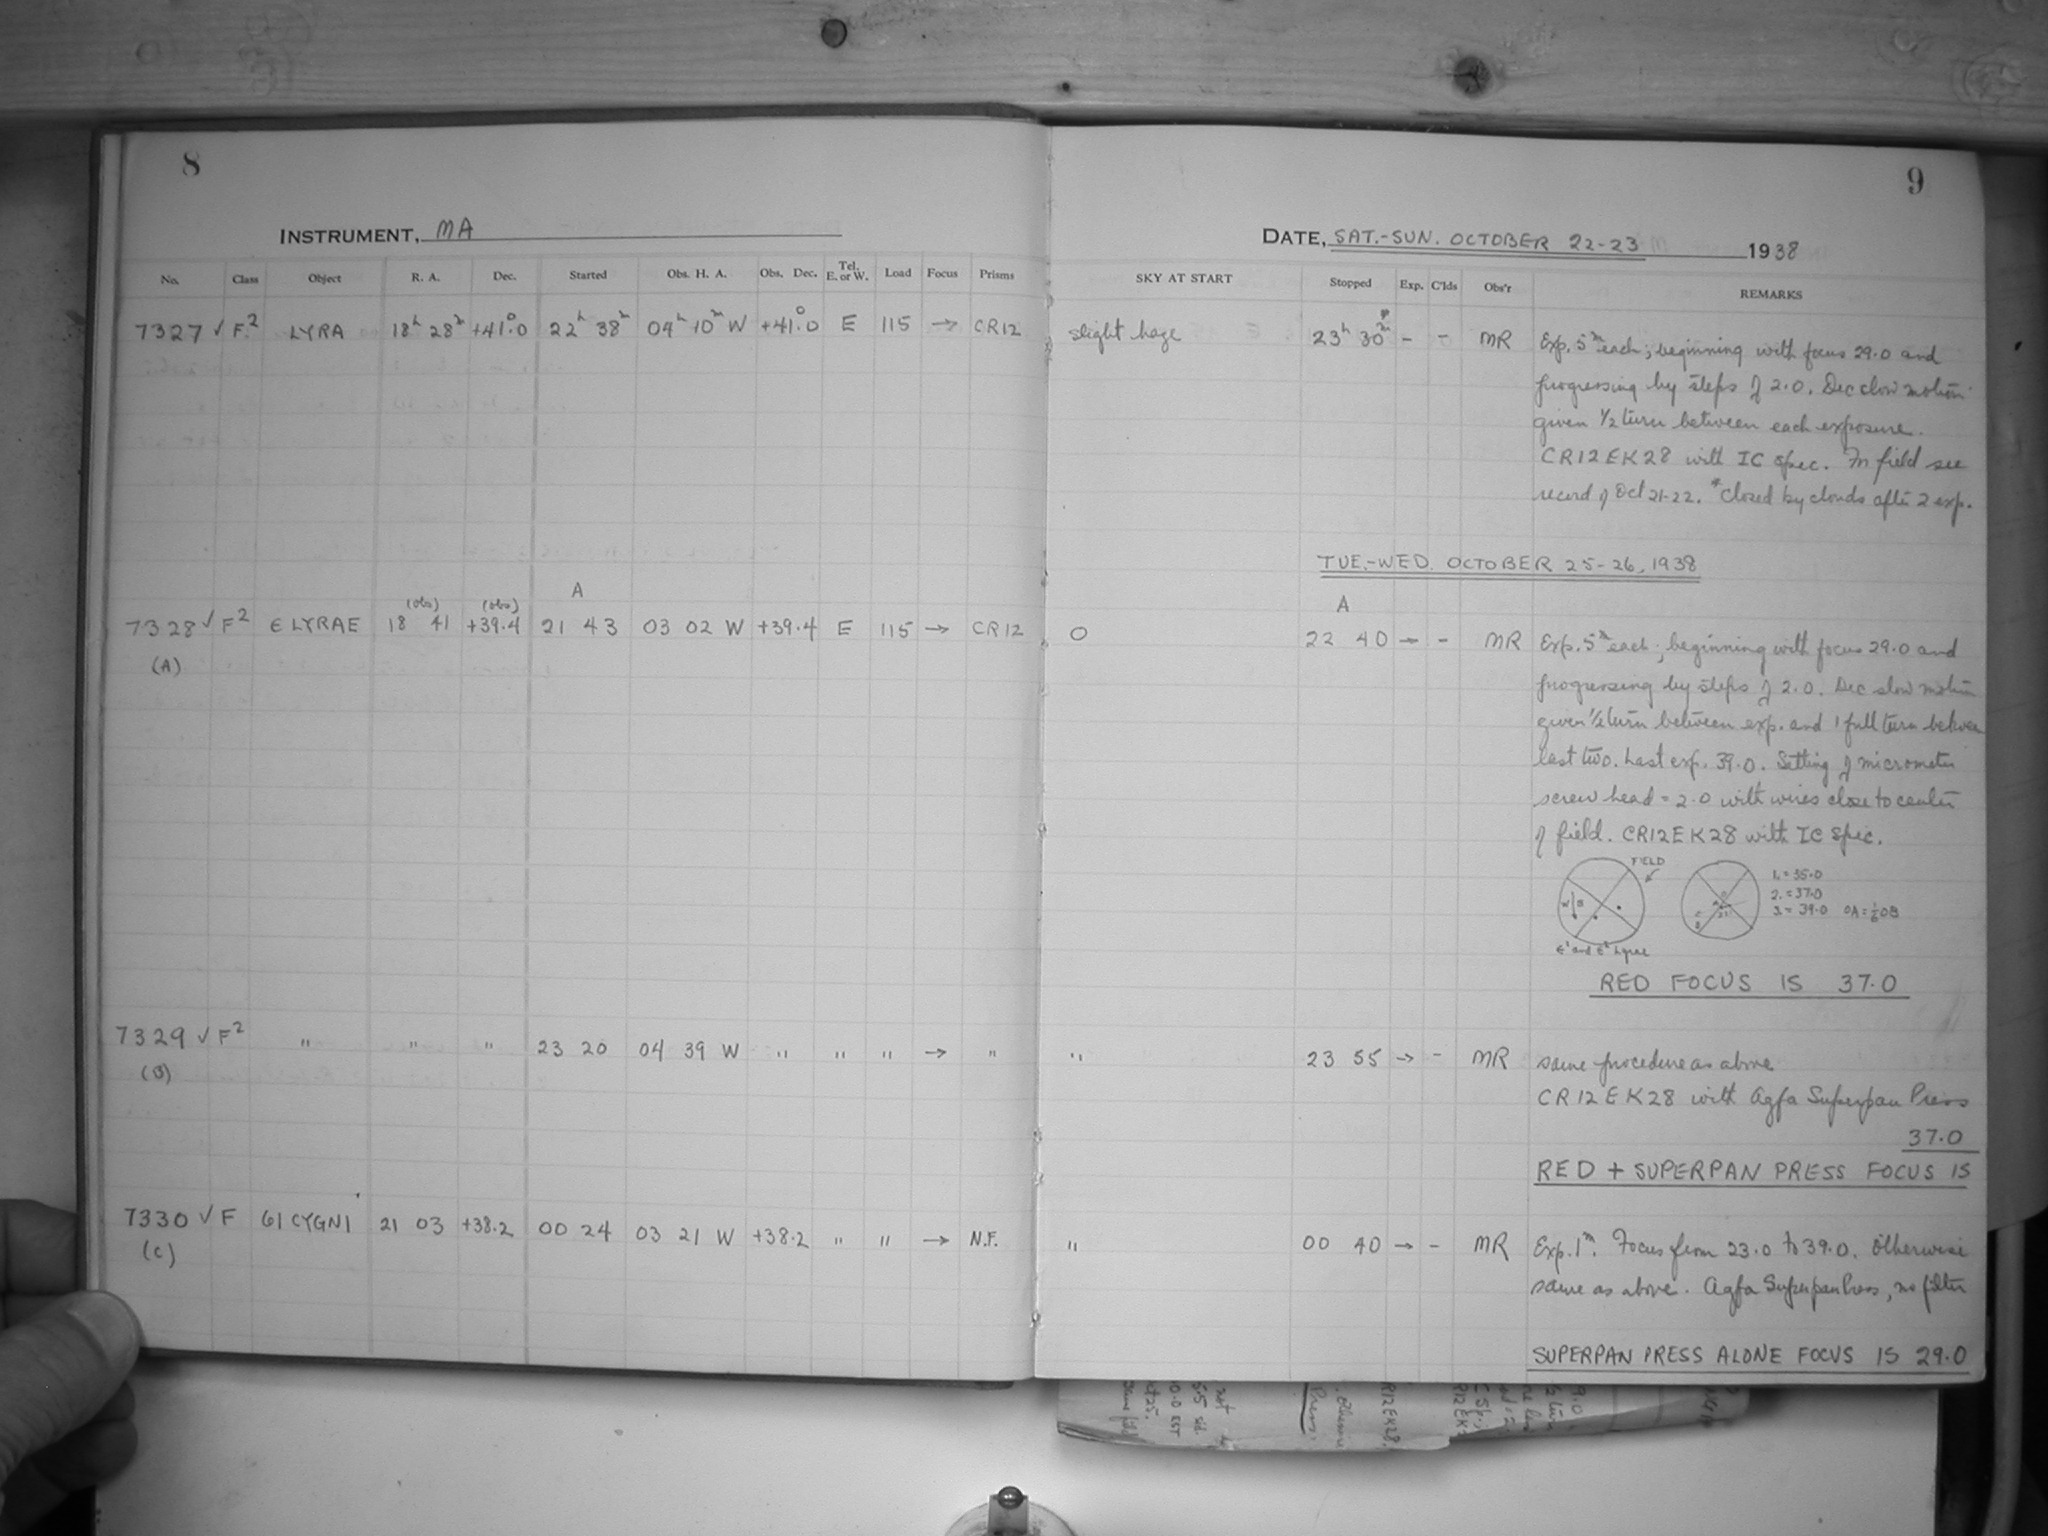 8
INSTRUMENT, MA
No. Class Object R. A. Dec. Started Obs. H. A. Obs. Dec. Tel. E. or W. Load Focus Prisms
7327 √ F² LYRA 18ʰ 28ᵐ +41°.0 22ʰ 38ᵐ 04ʰ 10ᵐ W +41°.0 E 115 → CR12
A
(obs) (obs)
7328 √ F² ϵ LYRAE 18 41 +39.4 21 43 03 02 W +39.4 E 115 → CR12
(A)
7329 √ F² " " " 23 20 04 39 W " " " → "
(B)
7330 √ F 61 CYGNI 21 03 +38.2 00 24 03 21 W +38.2 " " → N.F.
(C)
9
DATE, SAT.-SUN. OCTOBER 22-23 1938
SKY AT START Stopped Exp. C'lds Obs'r REMARKS
slight haze 23ʰ 30ᵐ* - - MR Exp. 5ᵐ each; beginning with focus 29.0 and
progressing by steps of 2.0. Dec slow motion
given 1/2 turn between each exposure.
CR12EK28 with IC spec. For field see
record of Oct 21-22. *Closed by clouds after 2 exp.
TUE.-WED. OCTOBER 25-26, 1938
A
0 22 40 → - MR Exp. 5ᵐ each; beginning with focus 29.0 and
progressing by steps of 2.0. Dec slow motion
given 1/2 turn between exp. and 1 full turn between
last two. Last exp. 39.0. Setting of micrometer
screw head = 2.0 with wires close to center
of field. CR12EK28 with IC Spec.
FIELD
1. = 35.0
2. = 37.0
3. = 39.0 OA = 1/6 OB
ϵ¹ and ϵ² Lyrae
RED FOCUS IS 37.0
" 23 55 → - MR same procedure as above
CR12EK28 with Agfa Superpan Press
37.0
RED + SUPERPAN PRESS FOCUS IS
" 00 40 → - MR Exp. 1ᵐ. Focus from 23.0 to 39.0. Otherwise
same as above. Agfa Superpan Press, no filter
SUPERPAN PRESS ALONE FOCUS IS 29.0